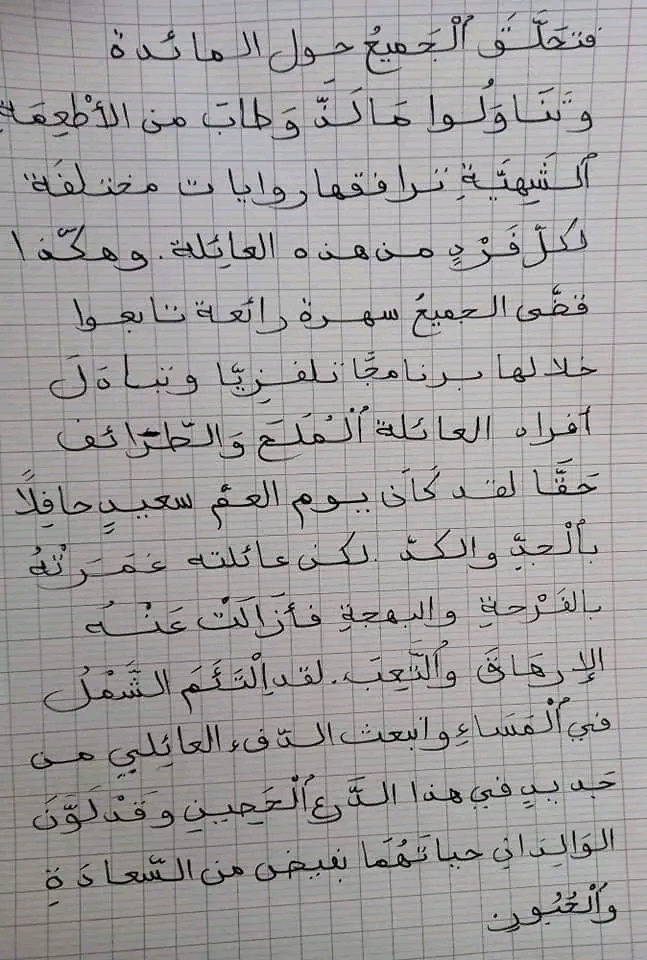 فتحَلَّقَ ٱلْجَمِيعُ حول المائدة
وتَنَاوَلُوا مَا لَذَّ وَطابَ من الأَطْعِمَةِ
ٱلشَهِيَّةِ ترافقها روايات مختلفَة
لكلّ فَرْدٍ من هذه العائِلة. وهكّذا
قضَّى الجميعُ سهرة رائعة تابعوا
خلالها برنامجًا تلفزِيًّا وتبادَلَ
أفراد العائلة ٱلْمُلَحَ وَالطّرَائف
حَقًّا لقد كَانَ يوم العمّ سعيدٍ حافِلًا
بٱلْجِدِّ والكدّ. لكن عائلته غَمَرَتْهُ
بالفَرْحةِ والبهجةِ فأزَالَتْ عَنْهُ
الإرهَاقَ وٱلتَّعِبَ. لقد اِلْتَئَمَ الشَّمْلُ
في ٱلْمَسَاءِ وانبعث الدّفء العائِلي من
جديدٍ في هذا الدَّرع ٱلْحَصِينِ وَقَدْ لَوَّنَ
الوَالِدانِ حياتَهُمَا بفيض من السَّعادَةِ
وٱلْحُبُورِ